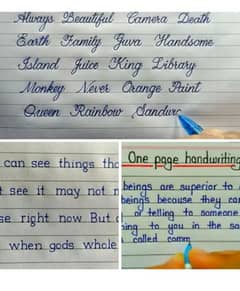 Always Beautiful Camera Death
Earth Family Guva Handsome
Island Juice King Library
Monkey Never Orange Paint
Queen Rainbow Sandwc
can see things tha
t see it may not
se right now. But d
when gods whole
One page handwriting
beings are superior to
beings because they can
or telling to someone
ing to you in the sa
called comm